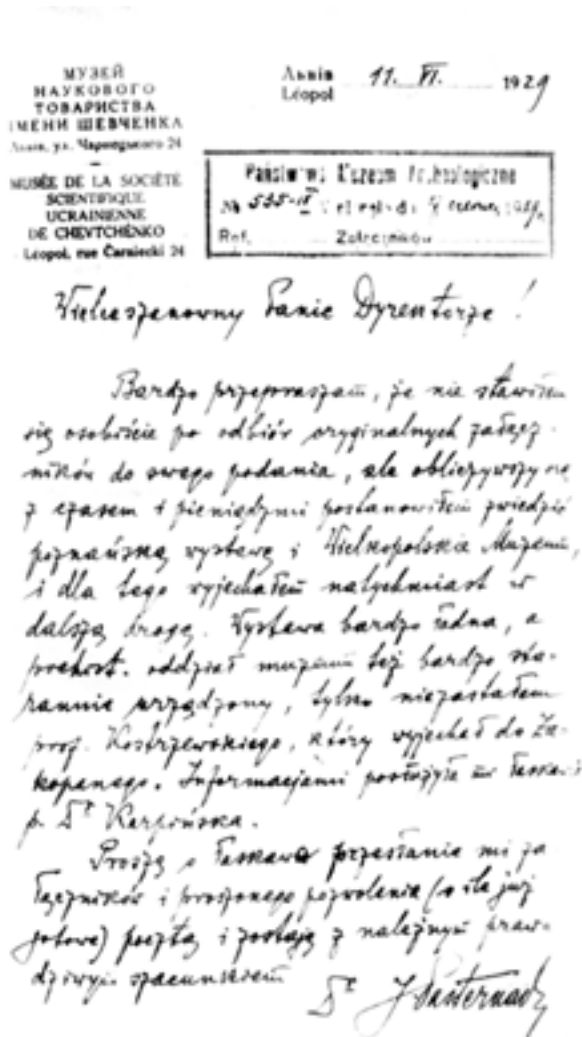 МУЗЕЙ
НАУКОВОГО
ТОВАРИСТВА
ІМЕНИ ШЕВЧЕНКА
Львів, ул. Чарнецького 24
MUSÉE DE LA SOCIÉTÉ
SCIENTIFIQUE
UCRAINIENNE
DE CHEVTCHÉNKO
Léopol, rue Čarniecki 24
Львів
Léopol
11. VI. 1929
Państwowe Muzeum Archeologiczne
№ 535-
Ref. Załączników
Wielceszanowny Panie Dyrektorze!
Bardzo przepraszam, że nie stawiłem
się osobiście po odbiór oryginalnych załącz-
ników do swego podania, ale obliczywszy się
z czasem i pieniądzmi postanowiłem zwiedzić
poznańską wystawę i Wielkopolskie Muzeum,
i dla tego wyjechałem natychmiast w
dalszą drogę. Wystawa bardzo ładna, a
prehist. oddział muzeum też bardzo sta-
rannie urządzony, tylko niezastałem
prof. Kostrzewskiego, który wyjechał do Za-
kopanego. Informacjami posłużyła mi łaskawie
p. Dr Karpińska.
Proszę o łaskawe przesłanie mi za
łączników i proszonego pozwolenia (o ile już
gotowe) pocztą i zostaję z należnym praw-
dziwym szacunkiem
Dr J Pasternak